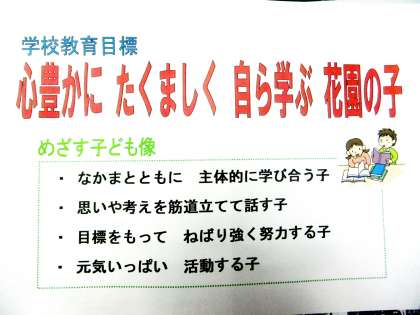 学校教育目標
心豊かに たくましく 自ら学ぶ 花園の子
めざす子ども像
・ なかまとともに 主体的に学び合う子
・ 思いや考えを筋道立てて話す子
・ 目標をもって ねばり強く努力する子
・ 元気いっぱい 活動する子